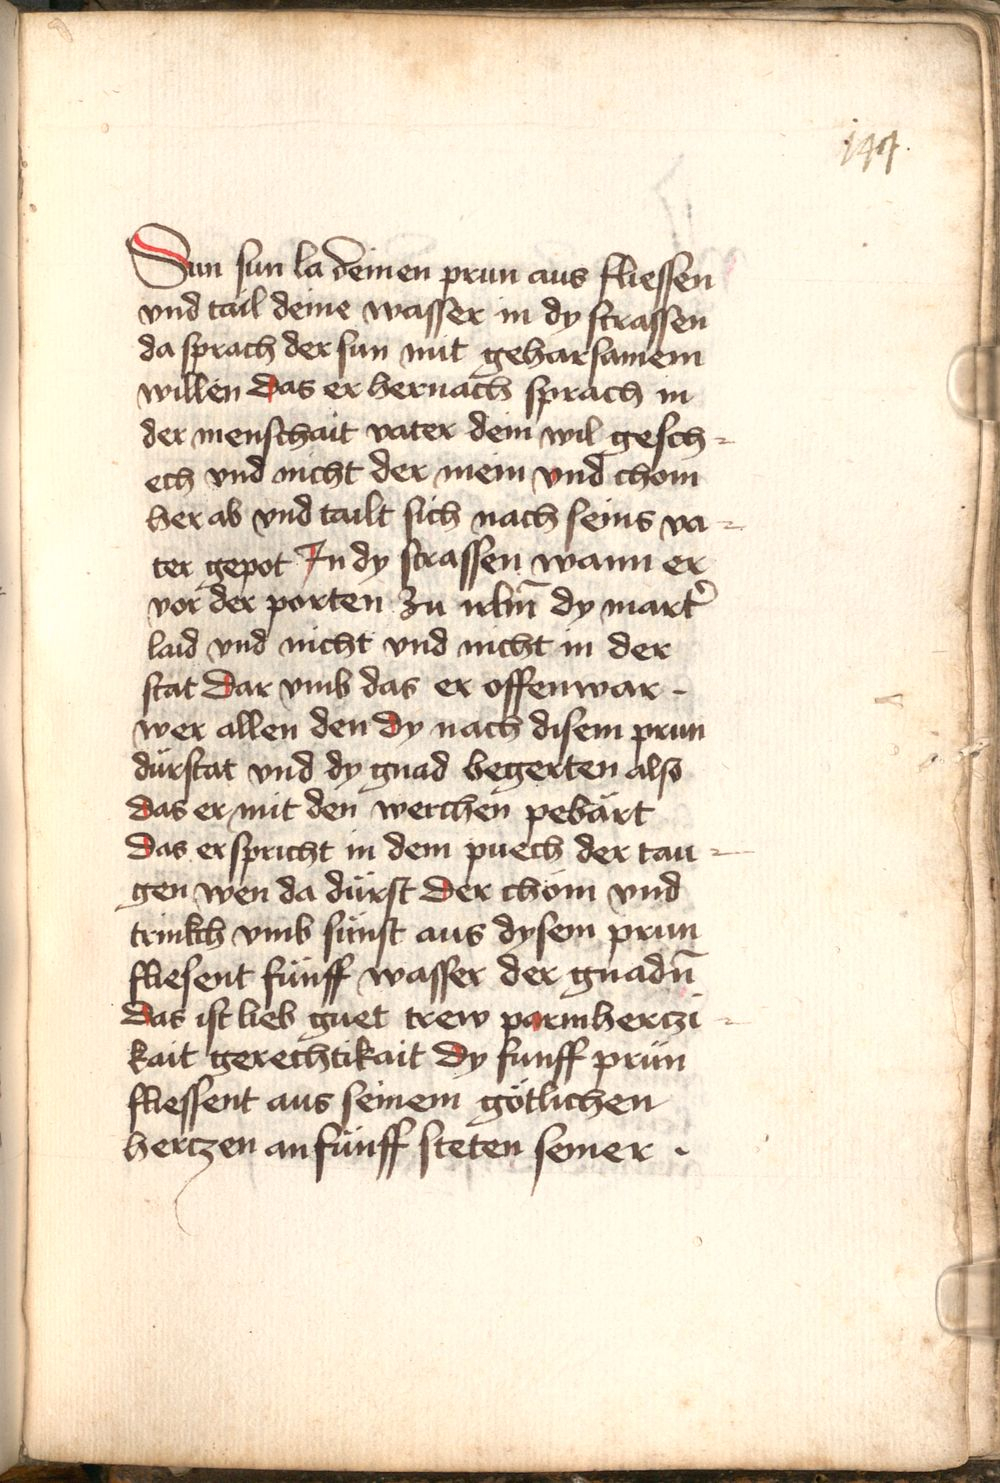 144.
Sun sun la deinen prun aus fliessen
vnd tail deine wasser in dy strassen
da sprach der sun mit geharsamem
willen das er hernach sprach in
der menschait vater dein wil gesch-
ech vnd nicht der mein vnd chom
her ab vnd tailt sich nach seins va-
ter gepot In dy strassen wann er
vor der porten zu irlm̄ dy mart̾
laid vnd nicht vnd nicht in der
stat Dar vmb das er offenwar -
wer allen den dy nach disem prun
dürstat vnd dy gnad begerten also
das er mit den werchen pebärt
Das er spricht in dem puech der tau-
gen wen da dürst der chöm vnd
trinkch vmb sünst aus dysem prun
fliesent fünff wasser der gnadn̄
Das ist lieb guet trew parmherczi-
kait gerechtikait Dy funff prün
fliessent aus seinem götlichen
herczen an fünff steten seiner .